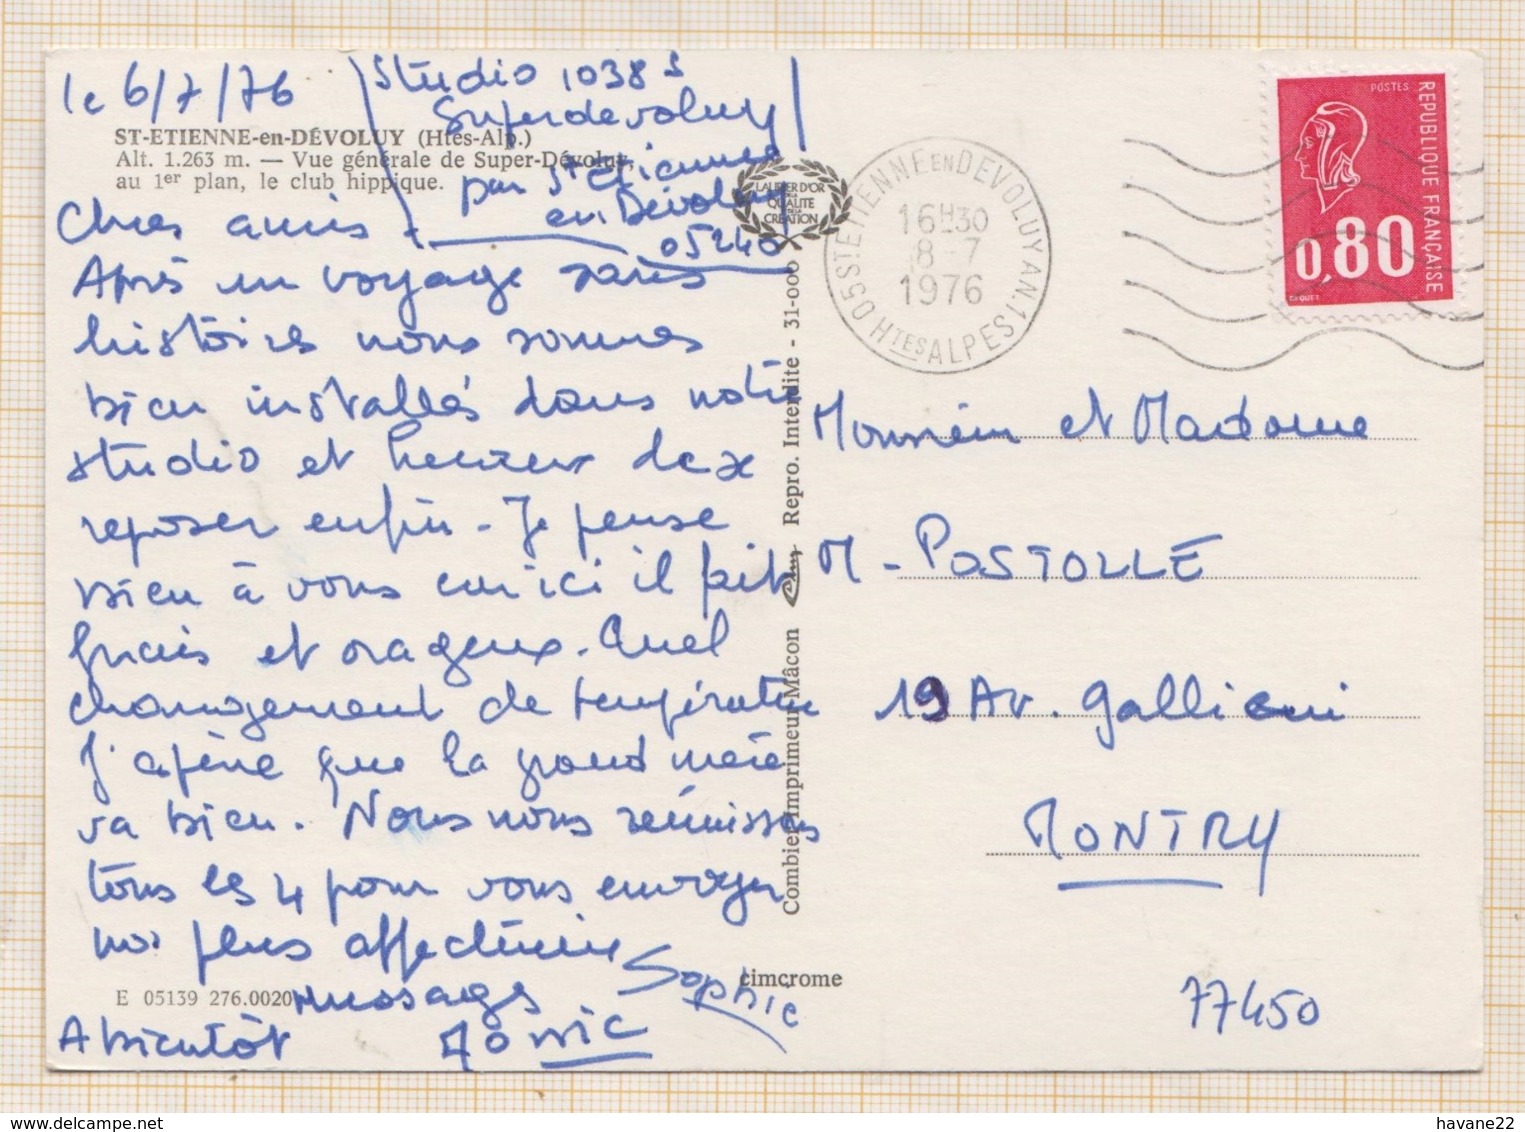 le 6/7/76
Studio 1038 s
Superdevoluy
par St Etienne
en Dévoluy
05240
ST-ETIENNE-en-DÉVOLUY (Htes-Alp.)
Alt. 1.263 m. — Vue générale de Super-Dévoluy,
au 1er plan, le club hippique.
Chers amis,
Après un voyage sans
histoires nous sommes
bien installés dans notre
studio et heureux de se
reposer enfin. Je pense
bien à vous car ici il fait
frais et orageux. Quel
changement de température
J'espère que la grand mère
va bien. Nous nous réunissons
tous les 4 pour vous envoyer
nos plus affectueux
messages
A bientôt
Sophie
E 05139 276.0020
cimcrome
LAURIER D'OR
DE LA
QUALITÉ
DE LA
CRÉATION
Combier Imprimeur Mâcon
Repro. Interdite - 31-000
05 ST ETIENNE EN DEVOLUY AN.1
HTES ALPES
16H30
8-7
1976
POSTES
REPUBLIQUE FRANÇAISE
0,80
BEQUET
Monsieur et Madame
M. POSTOLLE
19 Av. Gallieni
MONTRY
77450
havane22